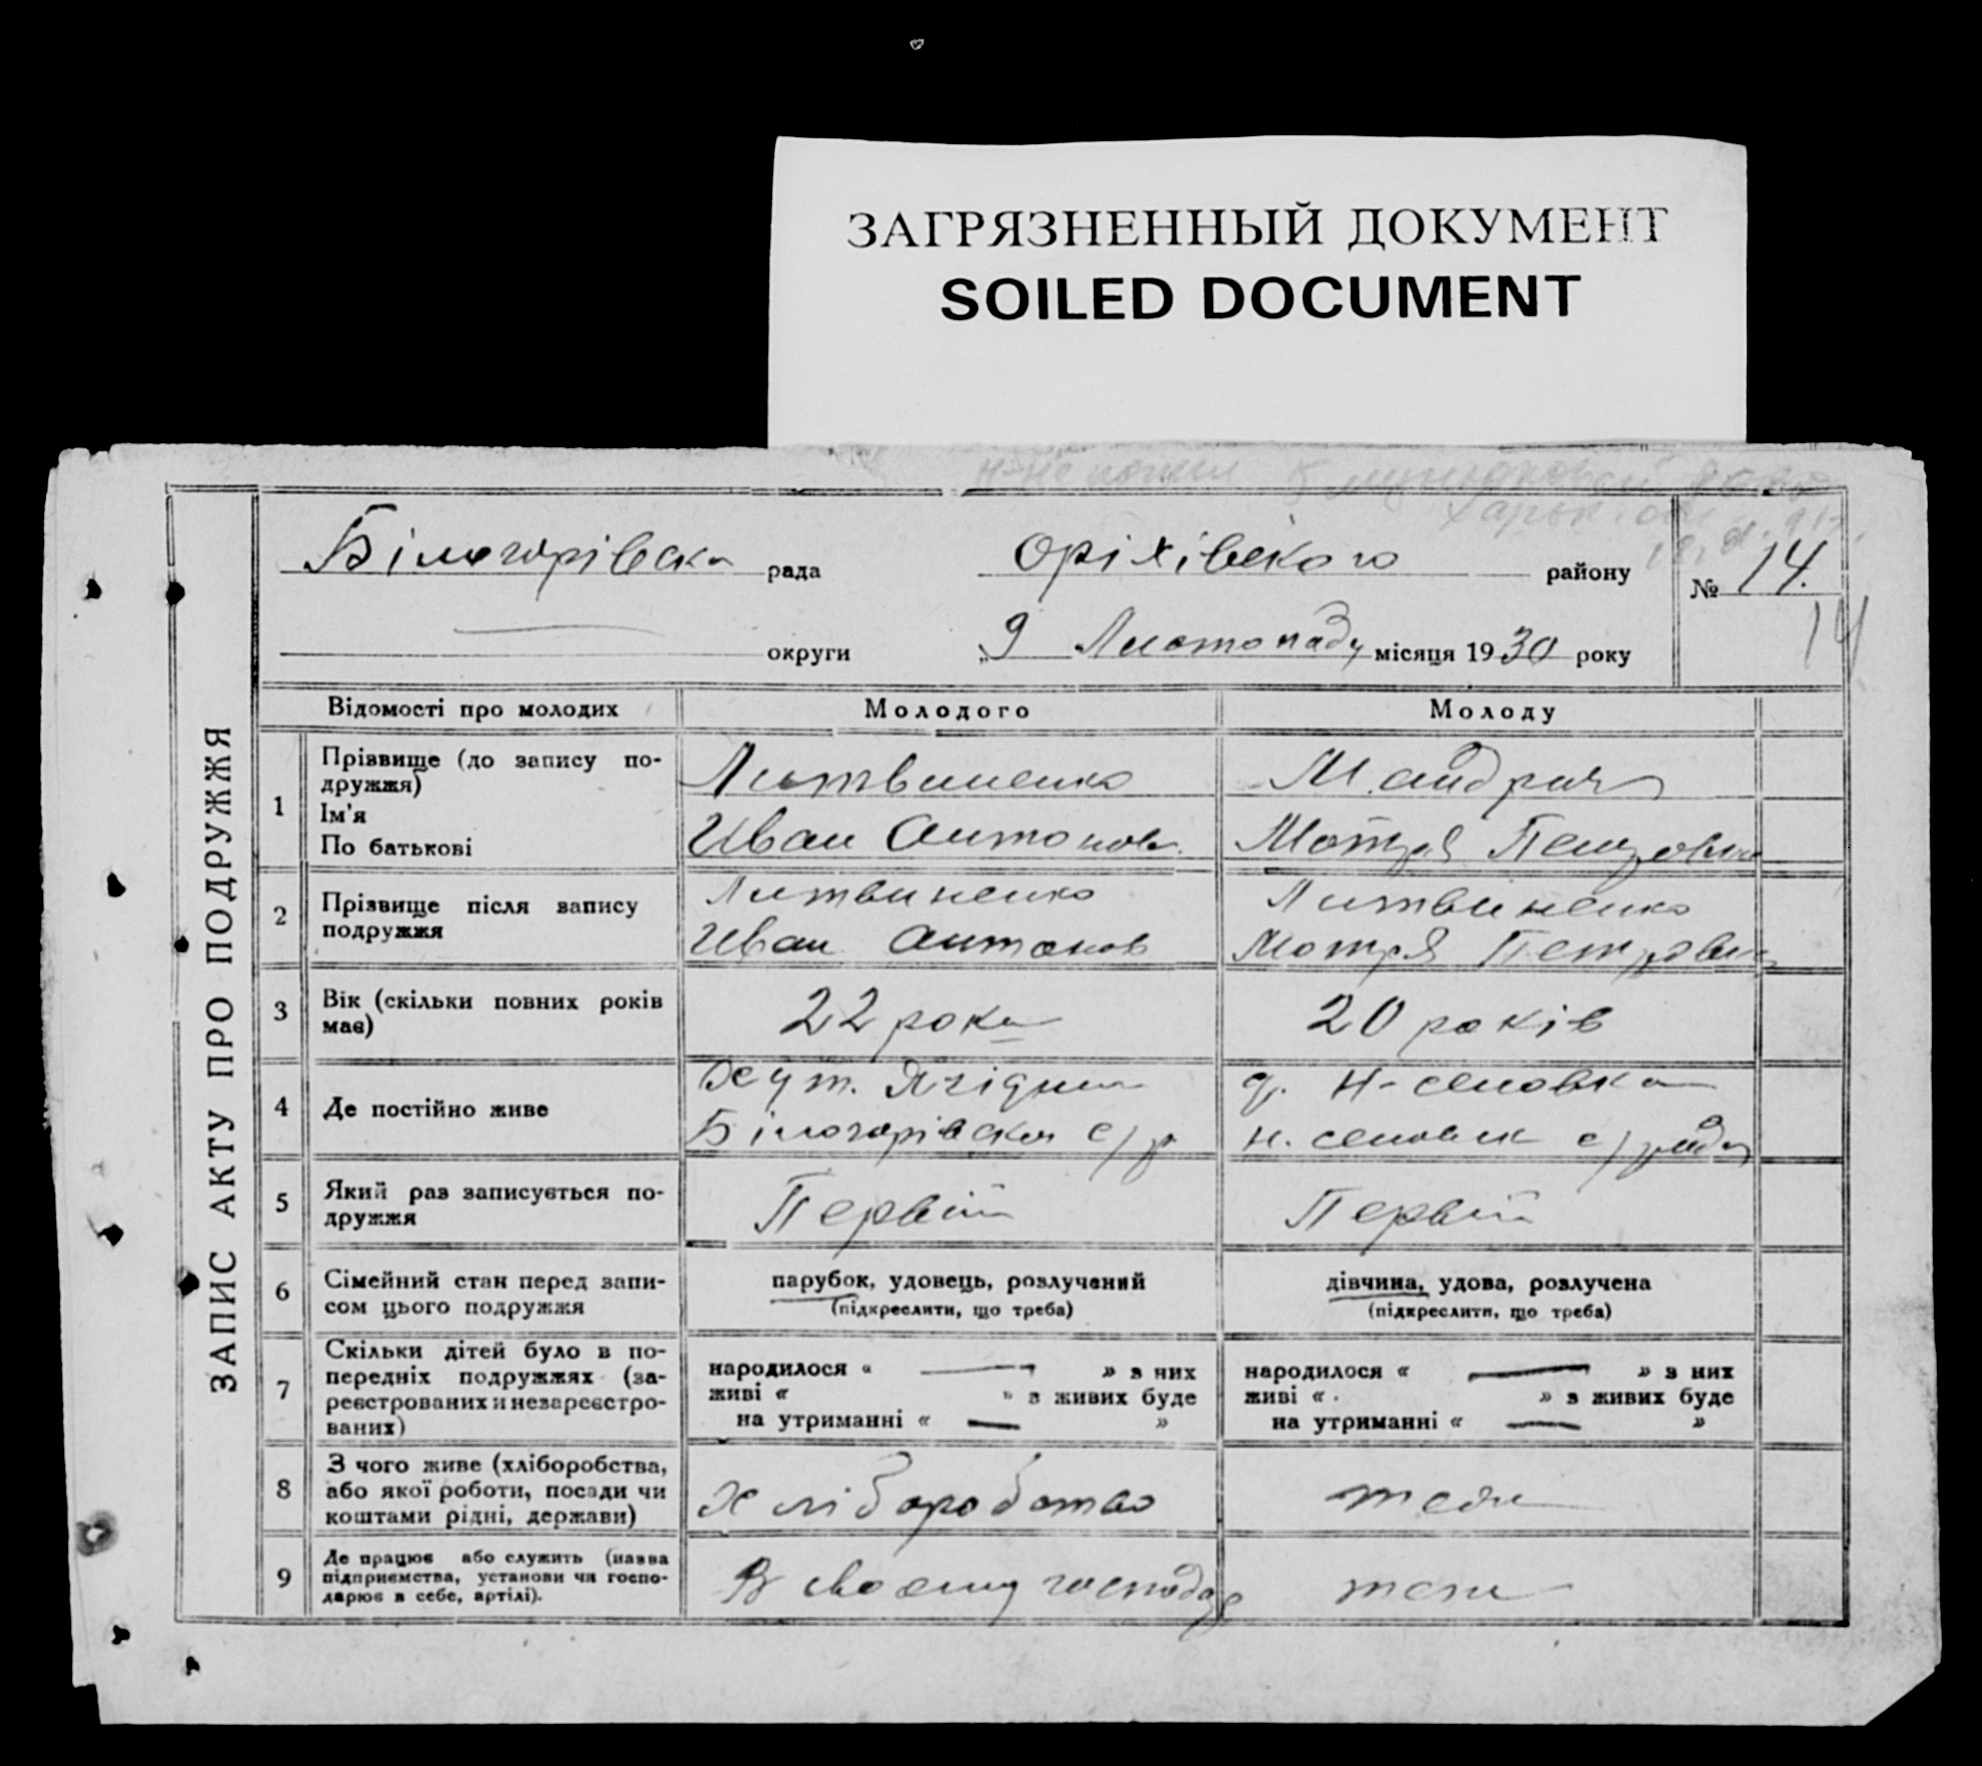 ЗАГРЯЗНЕННЫЙ ДОКУМЕНТ
SOILED DOCUMENT
ЗАПИС АКТУ ПРО ПОДРУЖЖЯ
Білогорівська рада Оріхівського району № 14.
округи „9 Листопаду місяця 1930 року
14
Відомості про молодих Молодого Молоду
1 Прізвище (до запису по-
дружжя)
Ім'я
По батькові
Литвиненко
Иван Антонов.
Мотря Петровна
2 Прізвище після запису
подружжя
Литвиненко
Иван Антонов
Литвиненко
Мотря Петровна
3 Вік (скільки повних років
має)
22 рока
20 років
4 Де постійно живе
Хут.
Білогорівская с/р
с/рада
5 Який раз записується по-
дружжя
Первій
Первій
6 Сімейний стан перед запи-
сом цього подружжя
парубок, удовець, розлучений
(підкреслити, що треба)
дівчина, удова, розлучена
(підкреслити, що треба)
7 Скільки дітей було в по-
передніх подружжях (за-
реєстрованих и незареєстро-
ваних)
народилося « — » з них
живі « » з живих буде
на утриманні « — »
народилося « — » з них
живі « » з живих буде
на утриманні « — »
8 З чого живе (хліборобства,
або якої роботи, посади чи
коштами рідні, держави)
хліборобство
тоже
9 Де працює або служить (назва
підприємства, установи чи госпо-
дарює в себе, артілі).
В своему господар